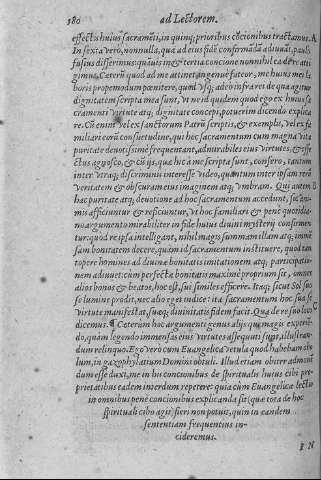 580 ad Lectorem.
effectus huius sacramẽti, in quinq; prioribus cõcionibus tractamus. A
In sexta vero, nonnulla, quæ ad eius fidẽ confirmãdã adiuuãt, paulò
fusius disserimus: quãuis in & tertia concione nonnihil ea de re atti
gimus. Ceterũ quod ad me attinet ingenuè fateor, me huius mei la
boris propemodum pœnitere, quod vsq; adeo infra res de qua agitur
dignitatem scripta mea sunt, vt ne id quidem quod ego ex huius sa
cramenti virtute atq; dignitate concepi, potuerim dicendo explica
re. Cũ enim vel ex sanctorum Patrũ scriptis, & exemplis, vel ex fa
miliari eorũ consuetudine, qui hoc sacramentum cum magna vitæ
puritate deuotissimè frequentant, admirabiles eius virtutes, & effe
ctus agnosco, & cũ ijs, quæ hic à me scripta sunt, confero, tantum
inter vtraq; discriminis interesse video, quantum inter ipsam rerũ
veritatem & obscuram eius imaginem atq; vmbram. Qui autem B
hac puritate atq; deuotione ad hoc sacramentum accedunt, sic ani-
mis afficiuntur & reficiuntur, vt hoc familiari & penè quotidia-
no argumento mirabiliter in fide huius diuini mysterij confirmen-
tur: quod re ipsa intelligant, nihil magis summam illam atq; immẽ
sam bonitatem decere, quàm id sacramentum instituere, quod tan
topere homines ad diuinæ bonitatis imitationem atq; participatio-
nem adiuuet: cùm perfectæ bonitatis maximè proprium sit, omnes
alios bonos & beatos, hoc est, sui similes efficere. Itaq; sicut Sol suo
se lumine prodit, nec alio eget indice: ita sacramentum hoc sua se
virtute manifestat, suæq; diuinitatis fidem facit. Qua de re suo loco C
dicemus. ¶ Ceterùm hoc argumenti genus alijs qui magis experiẽ-
do, quàm legendo immensas eius virtutes assequuti sunt, illustran-
dum relinquo. Ego vero cum Euangelica vetula quod habebam æs
lum, in gazophylatium Domini obtuli. Illud etiam obiter admonẽ
dum esse duxi, me in his concionibus de spiritualis huius cibi pro-
prietatibus eadem interdum repetere: quia cùm Euangelicæ lectio
in omnibus penè concionibus explicanda sit (quæ tota de hoc
spirituali cibo agit) fieri non potuit, quin in eandem
sententiam frequentius in-
cideremus.